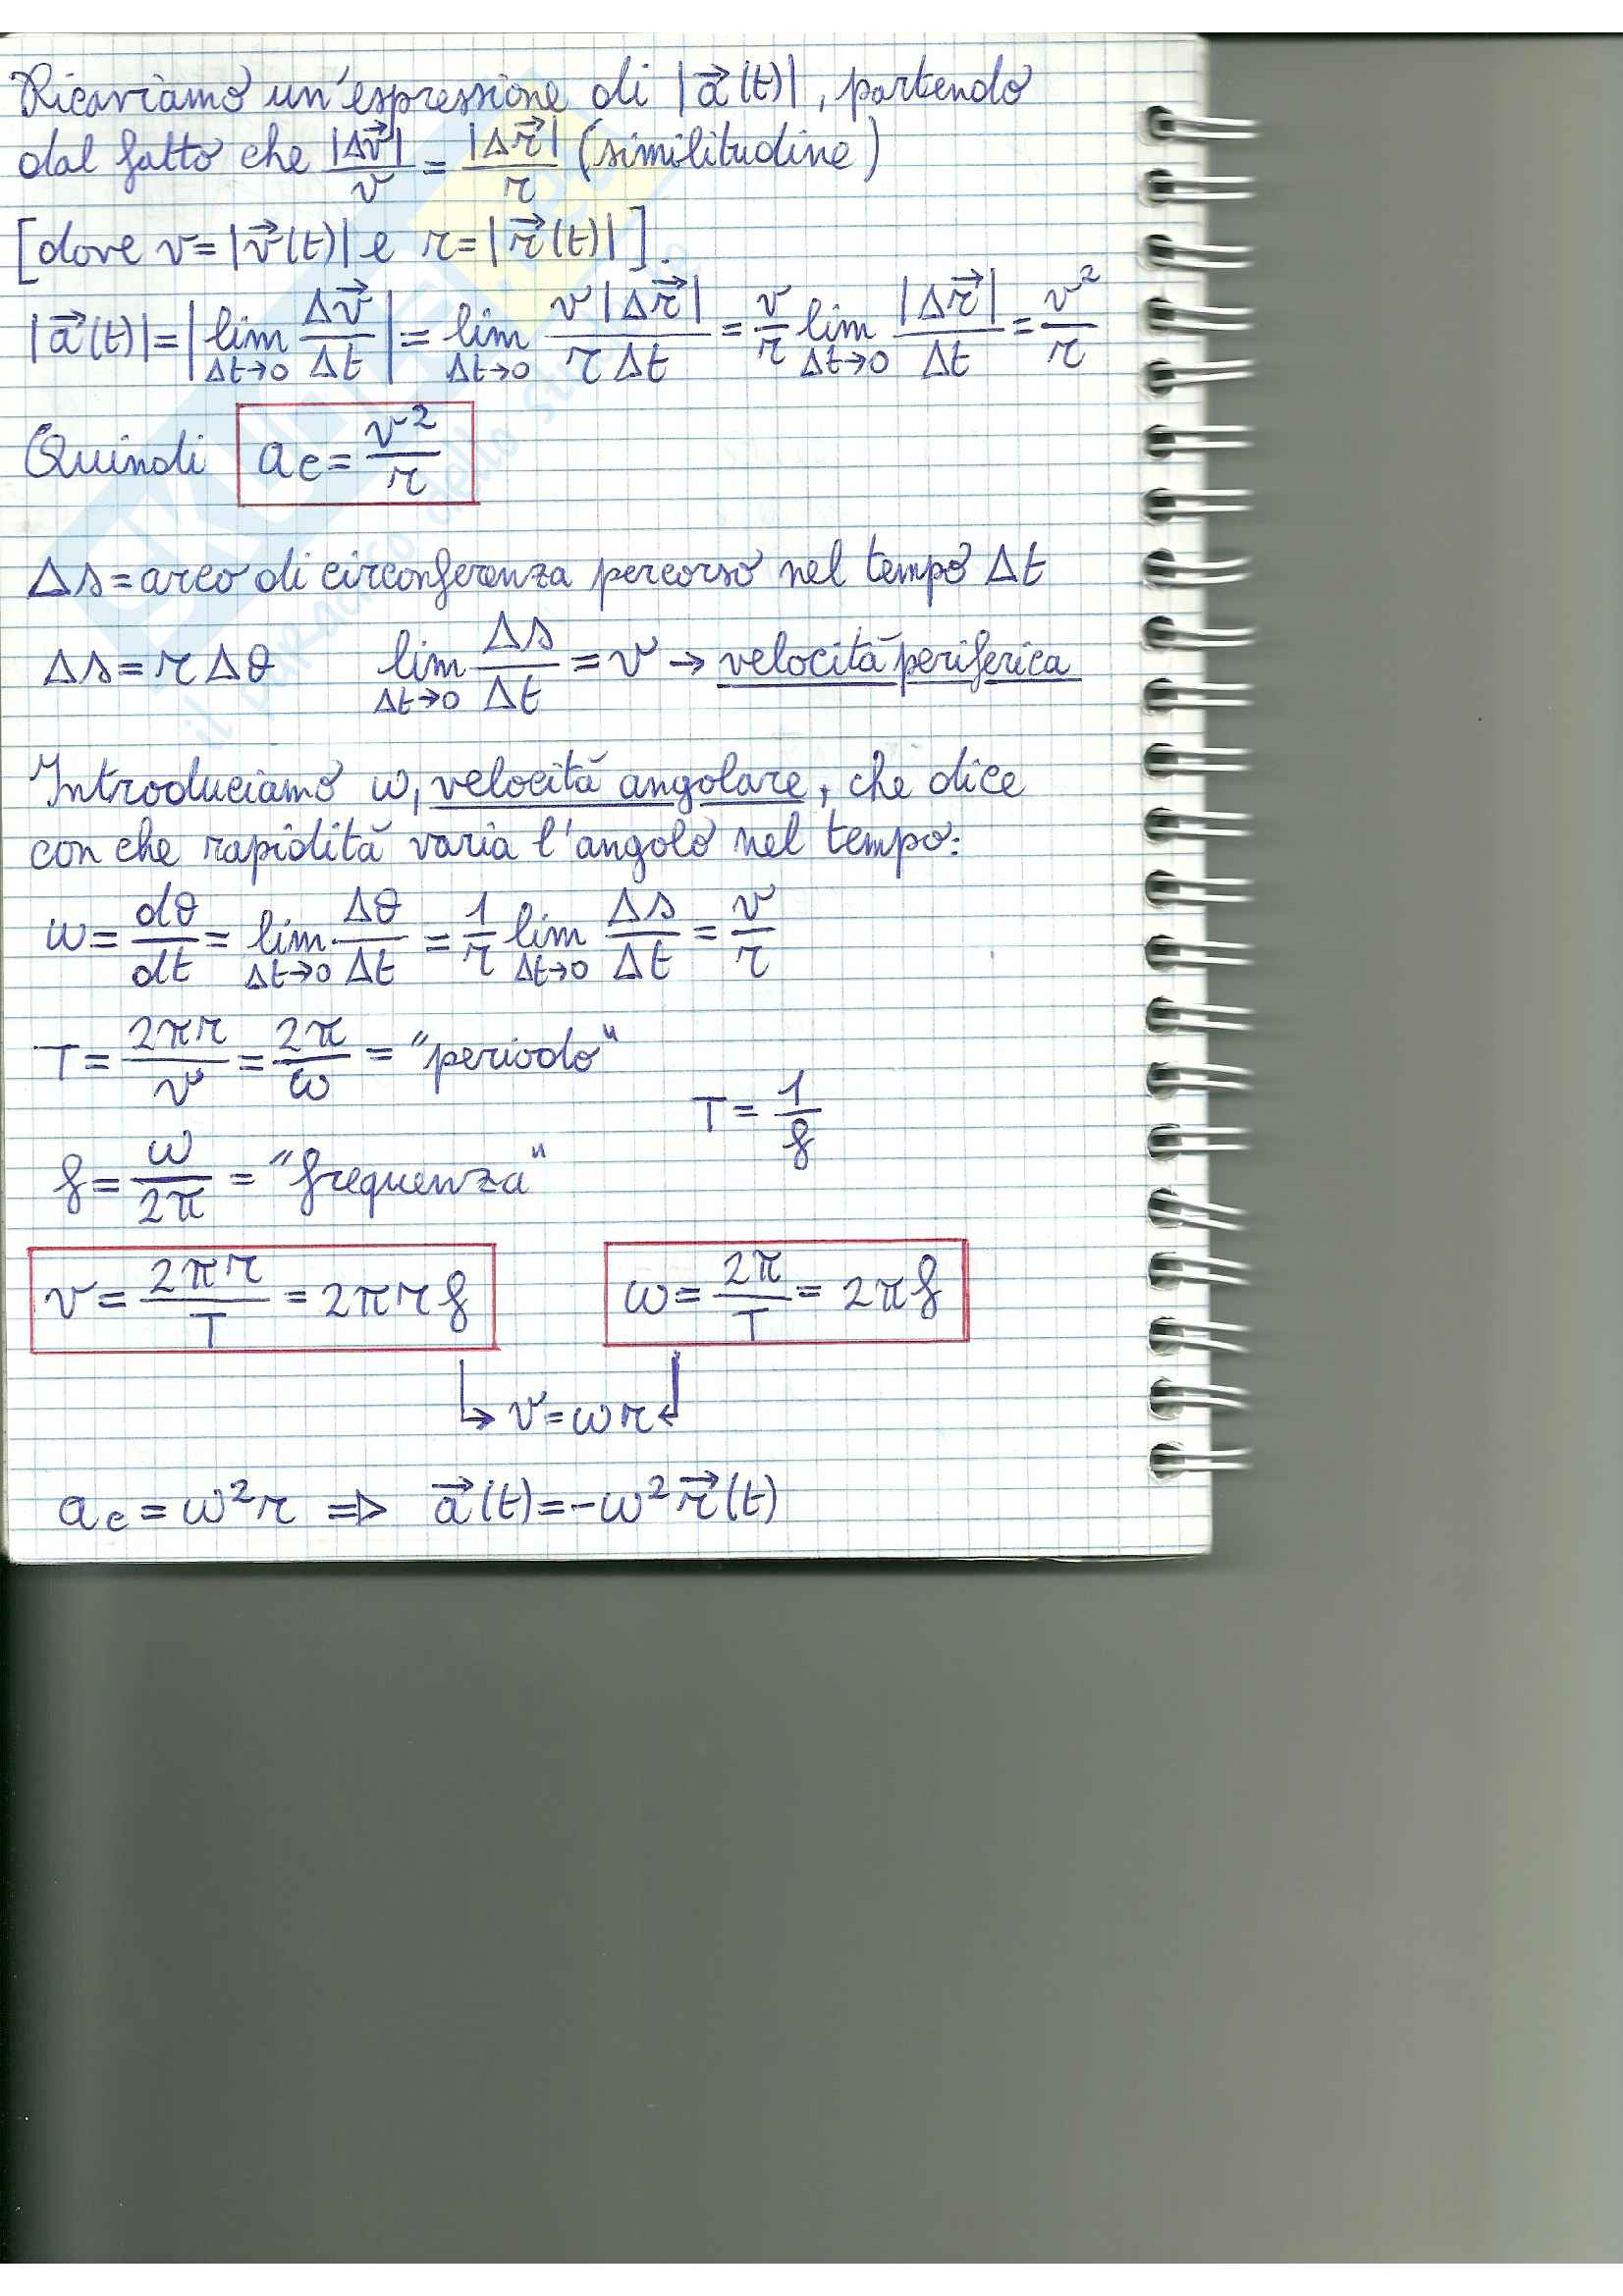 Ricaviamo un'espressione di |a⃗(t)|, partendo
dal fatto che |Δv⃗|/v = |Δr⃗|/r (similitudine)
[dove v=|v⃗(t)| e r=|r⃗(t)|].
|a⃗(t)|=|lim Δt→0 Δv⃗/Δt|= lim Δt→0 v|Δr⃗|/rΔt = v/r lim Δt→0 |Δr⃗|/Δt = v²/r
Quindi ac = v²/r
Δs=arco di circonferenza percorso nel tempo Δt
Δs=rΔθ lim Δt→0 Δs/Δt = v → velocità periferica
Introduciamo ω, velocità angolare, che dice
con che rapidità varia l'angolo nel tempo:
ω= dθ/dt = lim Δt→0 Δθ/Δt = 1/r lim Δt→0 Δs/Δt = v/r
T= 2πr/v = 2π/ω = "periodo"
T= 1/f
f= ω/2π = "frequenza"
v= 2πr/T = 2πrf ω= 2π/T = 2πf
↳ v=ωr ↲
ac=ω²r ⇒ a⃗(t)=-ω²r⃗(t)
SKUOLA.net
il paradiso dello studente